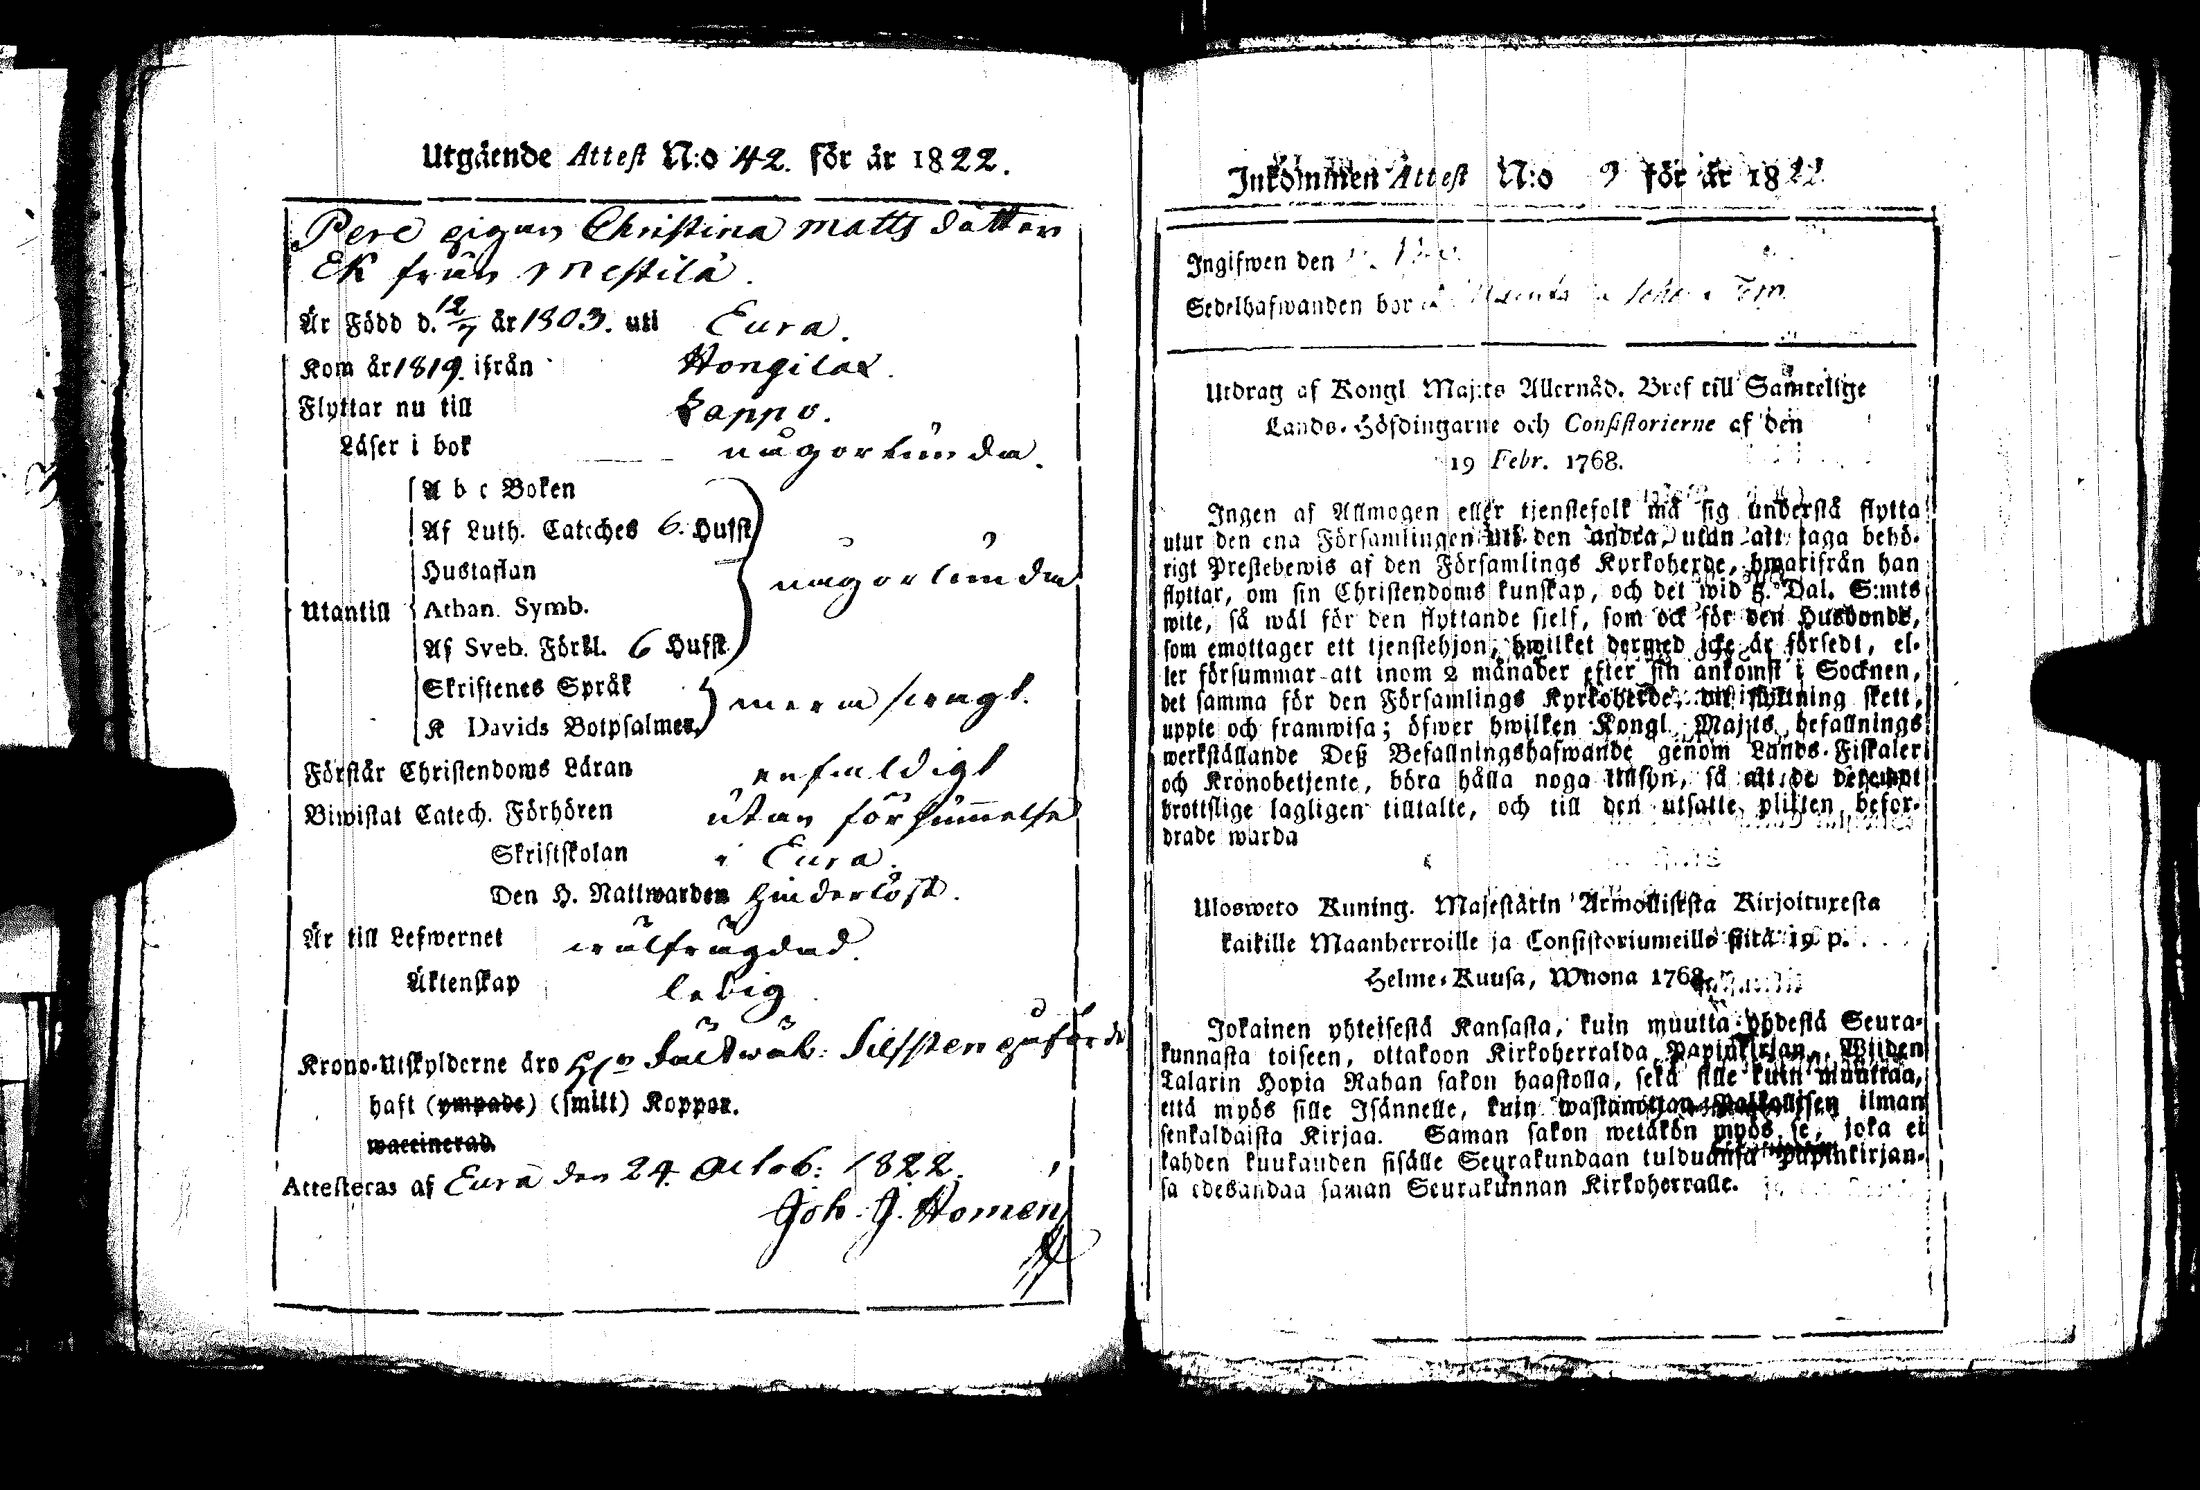 Utgående Attest N:o 42. för år 1822.
Pere pigan Christina Matts dotter
Ek från Mestilä.
Är Född d. 12/7 år 1803. uti Eura.
Kom år 1819. ifrån Hongilax.
Flyttar nu till Lappo.
Läser i bok någorlunda.
A b c Boken
Af Luth. Cateches 6. Hufst
Hustaflan
någorlunda
Utantill
Athan. Symb.
Af Sveb. Förkl. 6 Hufst
Skriftenes Språk
K Davids Botpsalmer,
Förstår Christendoms Läran enfaldigt
Biwistat Catech. Förhören utan försummelse
Skriftskolan i Eura.
Den H. Nattwarden hinderlöst.
Är till Lefwernet wälfrägdad.
Äktenskap ledig
Krono-Utskylderne äro
haft (ympade) (smitt) Koppor.
waccinerad
Attesteras af Eura den 24. Octob: 1822.
Joh. J. Homén
Inkommen Attest N:o 9 för år 1822.
Ingifwen den
Sedelhafwanden bor
Utdrag af Kongl Maj:ts Allernåd. Bref till Samtelige
Lands-Höfdingarne och Consistorierne af den
19 Febr. 1768.
Ingen af Allmogen eller tjenstefolk må sig understå flytta
utur den ena Församlingen uti den andra, utan att taga behö-
rigt Prestebewis af den Församlings Kyrkoherde, hwarifrån han
flyttar, om sin Christendoms kunskap, och det wid 5. Dal. S:mts
wite, så wäl för den flyttande sjelf, som ock för den Husbonde,
som emottager ett tjenstehjon, hwilket dermed icke är försedt, el-
ler försummar att inom 2 månader efter sin ankomst i Socknen,
det samma för den Församlings Kyrkoherde, dit flyttning skett,
uppte och framwisa; öfwer hwilken Kongl. Maj:ts befallnings
werkställande Deß Befallningshafwande genom Lands-Fiskaler
och Kronobetjente, böra hålla noga tillsyn, så att de deremot
brottslige lagligen tilltalte, och till den utsatte plikten befor-
drade warda
Ulosweto Kuning. Majestätin Armollisesta Kirjoituxesta
kaikille Maanherroille ja Consistoriumeille siitä 19 p.
Helme-Kuusa, Wuona 1768.
Jokainen yhteisestä Kansasta, kuin muutta yhdestä Seura-
kunnasta toiseen, ottakoon Kirkoherralda Papinkirjan, Wiiden
Talarin Hopia Rahan sakon haastolla, sekä sille kuin muuttaa,
että myös sille Isännelle, kuin wastanottaa Palkollisen ilman
senkaldaista Kirjaa. Saman sakon wetäkön myös se, joka ei
kahden kuukauden sisälle Seurakundaan tulduansa Papinkirjan-
sa edesandaa saman Seurakunnan Kirkoherralle.